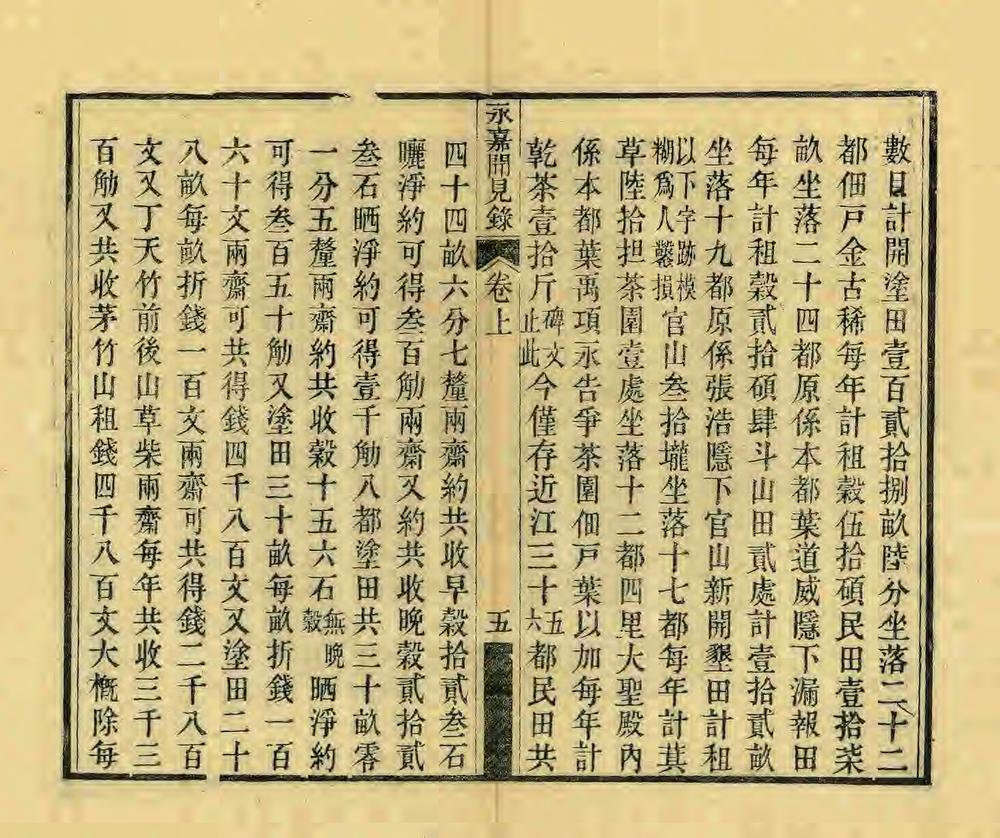 數目計開塗田壹百貳拾捌畝陸分坐落二十二
都佃戶金古稀每年計租穀伍拾碩民田壹拾柒
畝坐落二十四都原係本都葉道威隱下漏報田
每年計租穀貳拾碩肆斗山田貳處計壹拾貳畝
坐落十九都原係張浩隱下官山新開墾田計租
以下字跡模糊爲人鑿損官山叁拾壠坐落十七都每年計萁
草陸拾担茶園壹處坐落十二都四里大聖殿內
係本都葉禼項永告爭茶園佃戶葉以加每年計
乾茶壹拾斤碑文止此今僅存近江三十五六都民田共
永嘉聞見錄 卷上 五
四十四畝六分七釐兩齋約共收早穀拾貳叁石
曬淨約可得叁百觔兩齋又約共收晚穀貳拾貳
叁石晒淨約可得壹千觔八都塗田共三十畝零
一分五釐兩齋約共收穀十五六石無晚穀晒淨約
可得叁百五十觔又塗田三十畝每畝折錢一百
六十文兩齋可共得錢四千八百文又塗田二十
八畝每畝折錢一百文兩齋可共得錢二千八百
文又丁天竹前後山草柴兩齋每年共收三千三
百觔又共收茅竹山租錢四千八百文大槪除每